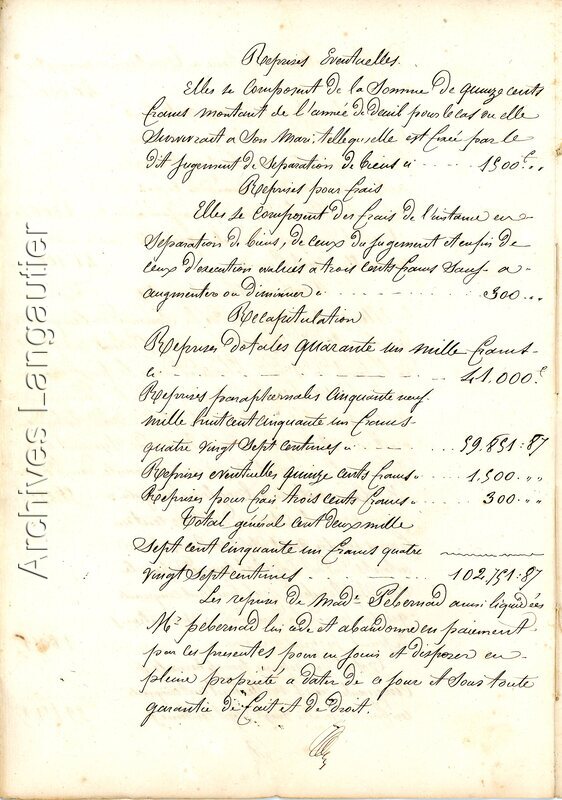 Reprises Eventuelles.
Elles se composent de la somme de quinze cents
francs montant de l'année de deuil pour le cas ou elle
survivrait a son mari, telle qu'elle est fixée par le
dit jugement de séparation de biens ci - - - - - 1500 f. "
Reprises pour frais
Elles se composent des frais de l'instance en
séparation de biens, de ceux du jugement et enfin de
ceux d'exécution evalués a trois cents francs sauf a
augmenter ou diminuer ci - - - - - 300. "
Recapitulation
Reprises dotales quarante un mille francs
ci - - - - - 41.000. f
Reprises paraphernales cinquante neuf
mille huit cent cinquante un francs
quatre vingt sept centimes ci - - - 59.851: 87
Reprises eventuelles quinze cents francs ci 1,500. "
Reprises pour frais trois cents francs ci 300. "
Total général cent deux mille
sept cent cinquante un francs quatre
vingt sept centimes. - - - - 102,751: 87
Les reprises de Made Pebernad ainsi liquidées
Mr. pebernad lui cede et abandonne en paiement
par ces presentes pour en jouir et disposer en
pleine propriété a dater de ce jour et sous toute
garantie de fait et de droit.
Archives Langautier